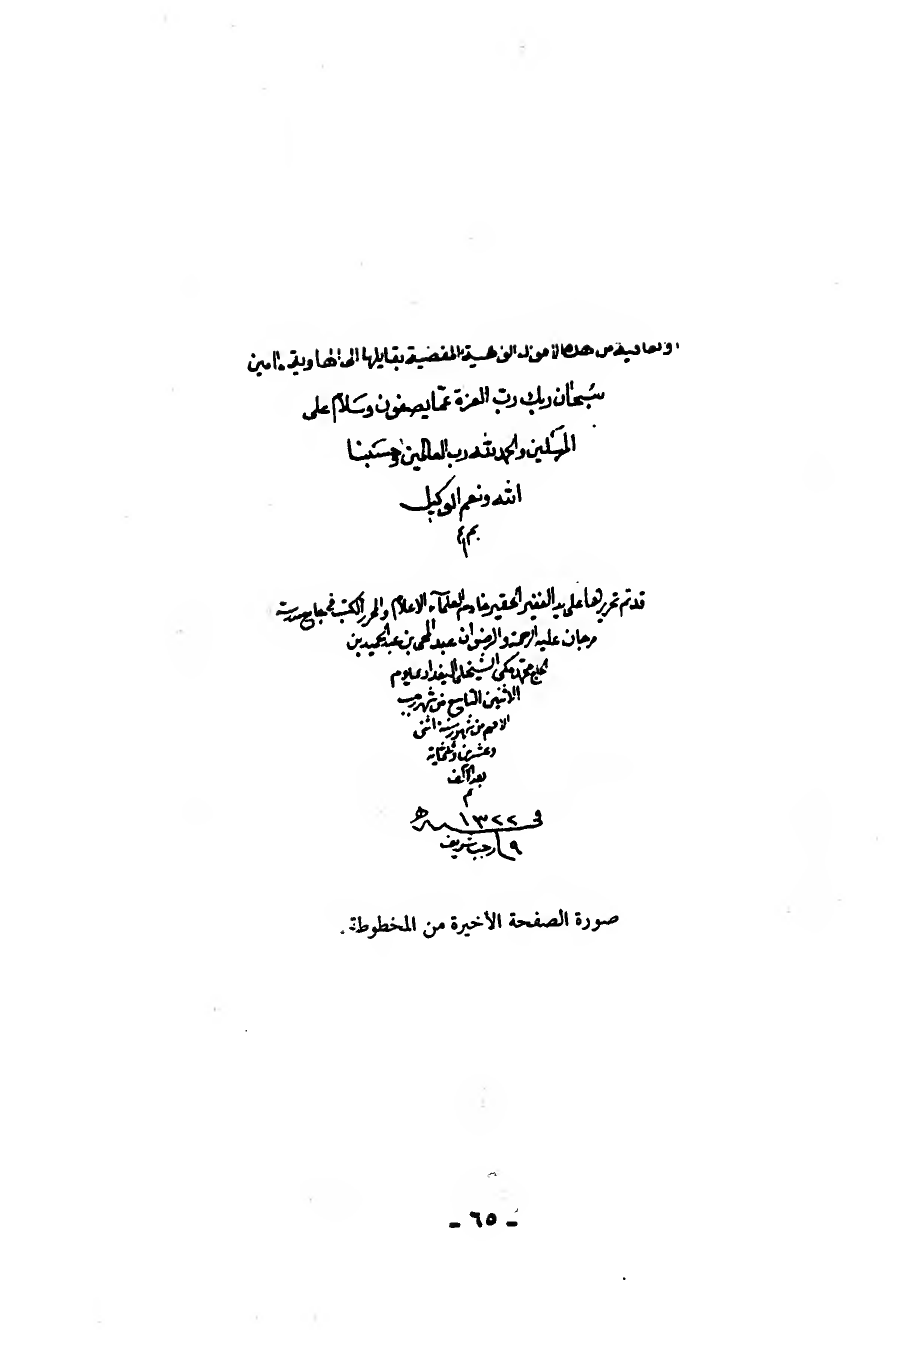 والعافية من هذه الأمور الوهمية المفضية بقايلها الى الهاوية امين
سبحان ربك ربّ العزة عمّا يصفون وسلامٌ على
المرسلين والحمد لله رب العالمين وحسبنا
الله ونعم الوكيل
م
قد تم تحريرها على يد الفقير الحقير خادم العلمآء الاعلام والمحرر الكتب في جامع مدرسة
مرجان عليه الرحمة والرضوان عبد المحي بن عبد الحميد بن
الحاج محمد مكي الشيخلي البغدادي يوم
الاثنين التاسع من شهر رجب
الاصم من شهور سنة اثنى
وعشرين وثلثماية
بعد الألف
م
في ١٣٢٢ سنه ه
٩ رجب شريف
صورة الصفحة الأخيرة من المخطوطة .
ـ ٦٥ ـ